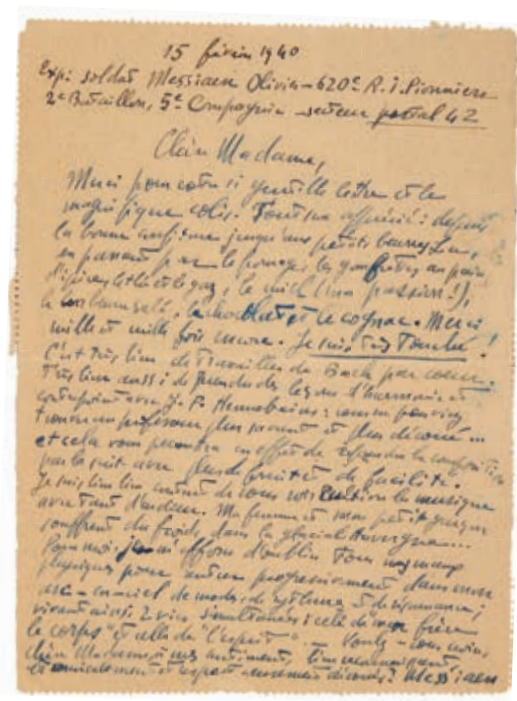 15 février 1940
Exp: soldat Messiaen Olivier - 620e R.I. Pionniers
2e Bataillon, 5e Compagnie - secteur postal 42
Chère Madame,
Merci pour votre si gentille lettre et le
magnifique colis. Tout sera apprécié: depuis
la bonne confiture jusqu'aux petits beurre
en passant par le fromage, les gaufrettes, au pain
d'épices, le thé et le, le miel (ma passion!),
le, le chocolat et le cognac. Merci
mille et mille fois encore. Je suis très touché!
C'est très bien de travailler du Bach par coeur.
Très bien aussi de prendre des leçons d'harmonie et
contrepoint avec J. P. Hennebains: vous ne pouviez
trouver un professeur plus savant et plus dévoué...
et cela vous permettra en effet de reprendre la composition
par la suite avec plus de fruit et de facilité.
Je suis bien content de vous voir la musique
avec tant d'ardeur. Ma femme et mon petit garçon
souffrent du froid dans la glacial Auvergne...
Pour moi, je m'efforce d'oublier tous mes maux
physiques pour entrer progressivement dans mon
de modes, de rythmes et de résonances;
vivant ainsi 2 vies simultanées: celle de mon "frère
le corps" et celle de "l'esprit". - Voulez-vous croire,
chère Madame, à mes sentiments bien reconnaissants,
et respectueusement dévoués? Messiaen